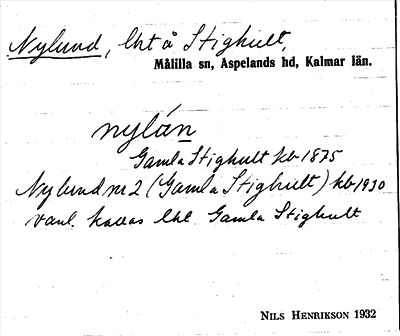 Nylund, lht å Stighult,
Målilla sn, Aspelands hd, Kalmar län.
nylán
Gamla Stighult kb 1875
Nylund nr 2 (Gamla Stighult) kb 1930
vanl. kallas lht Gamla Stighult
NILS HENRIKSON 1932